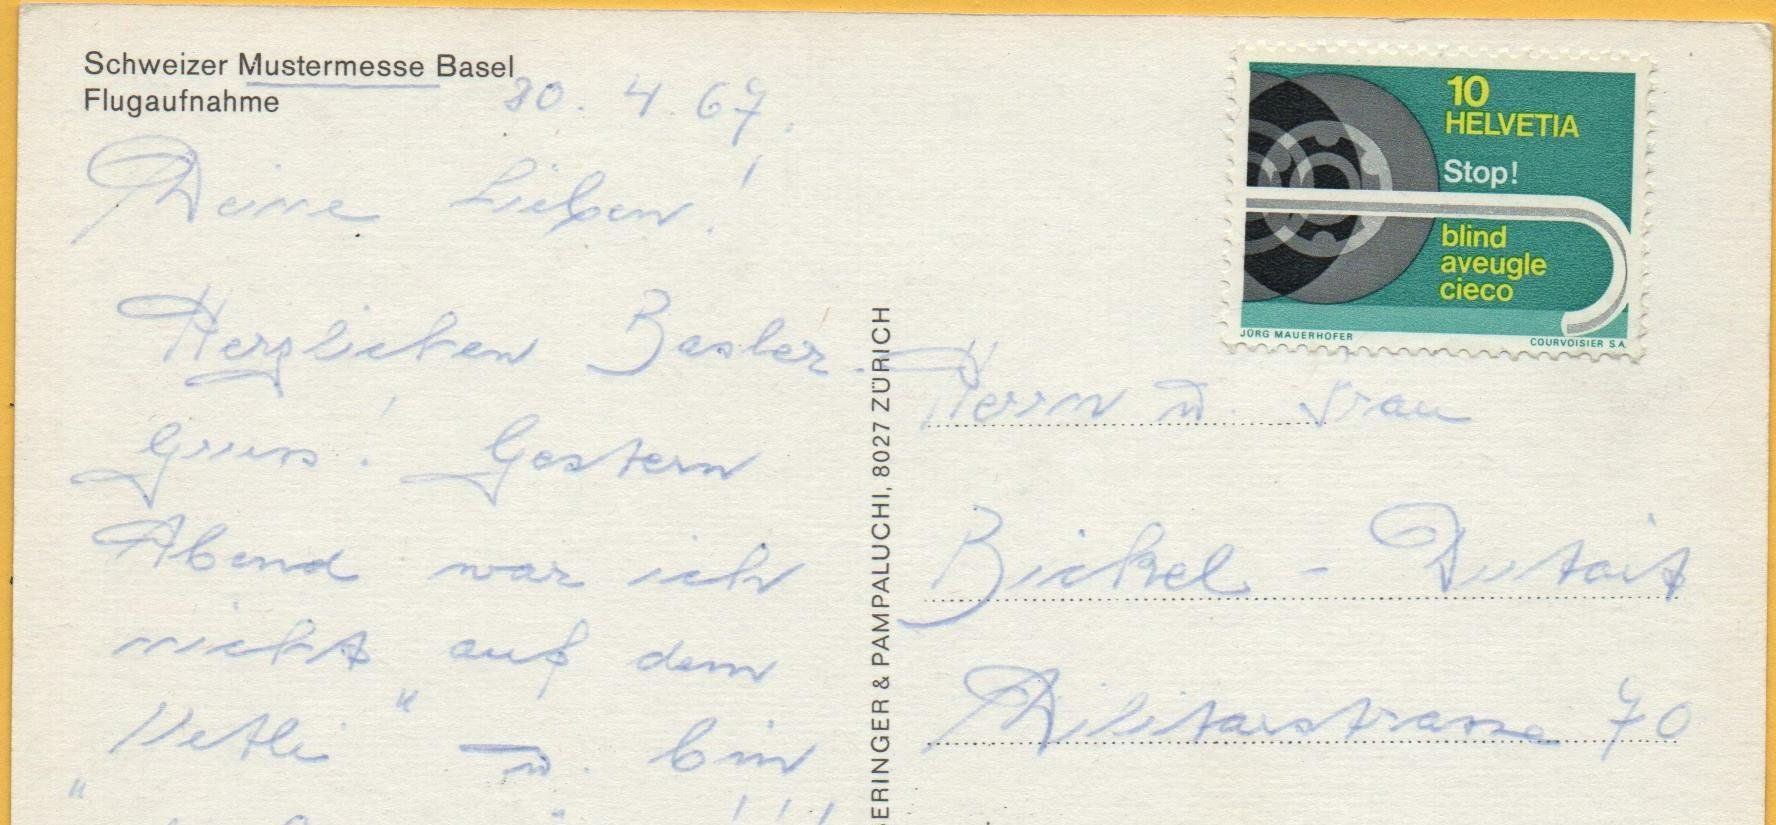 Schweizer Mustermesse Basel
Flugaufnahme
30. 4. 67.
Meine Lieben!
Herzlichen Basler-
gruss! Gestern
Abend war ich
nicht auf dem
"Uetli" u. bin
BERINGER & PAMPALUCHI, 8027 ZÜRICH
10
HELVETIA
Stop!
blind
aveugle
cieco
JÜRG MAUERHOFER
COURVOISIER S.A.
Herrn u. Frau
Bickel - Dutoit
Militärstrasse 70